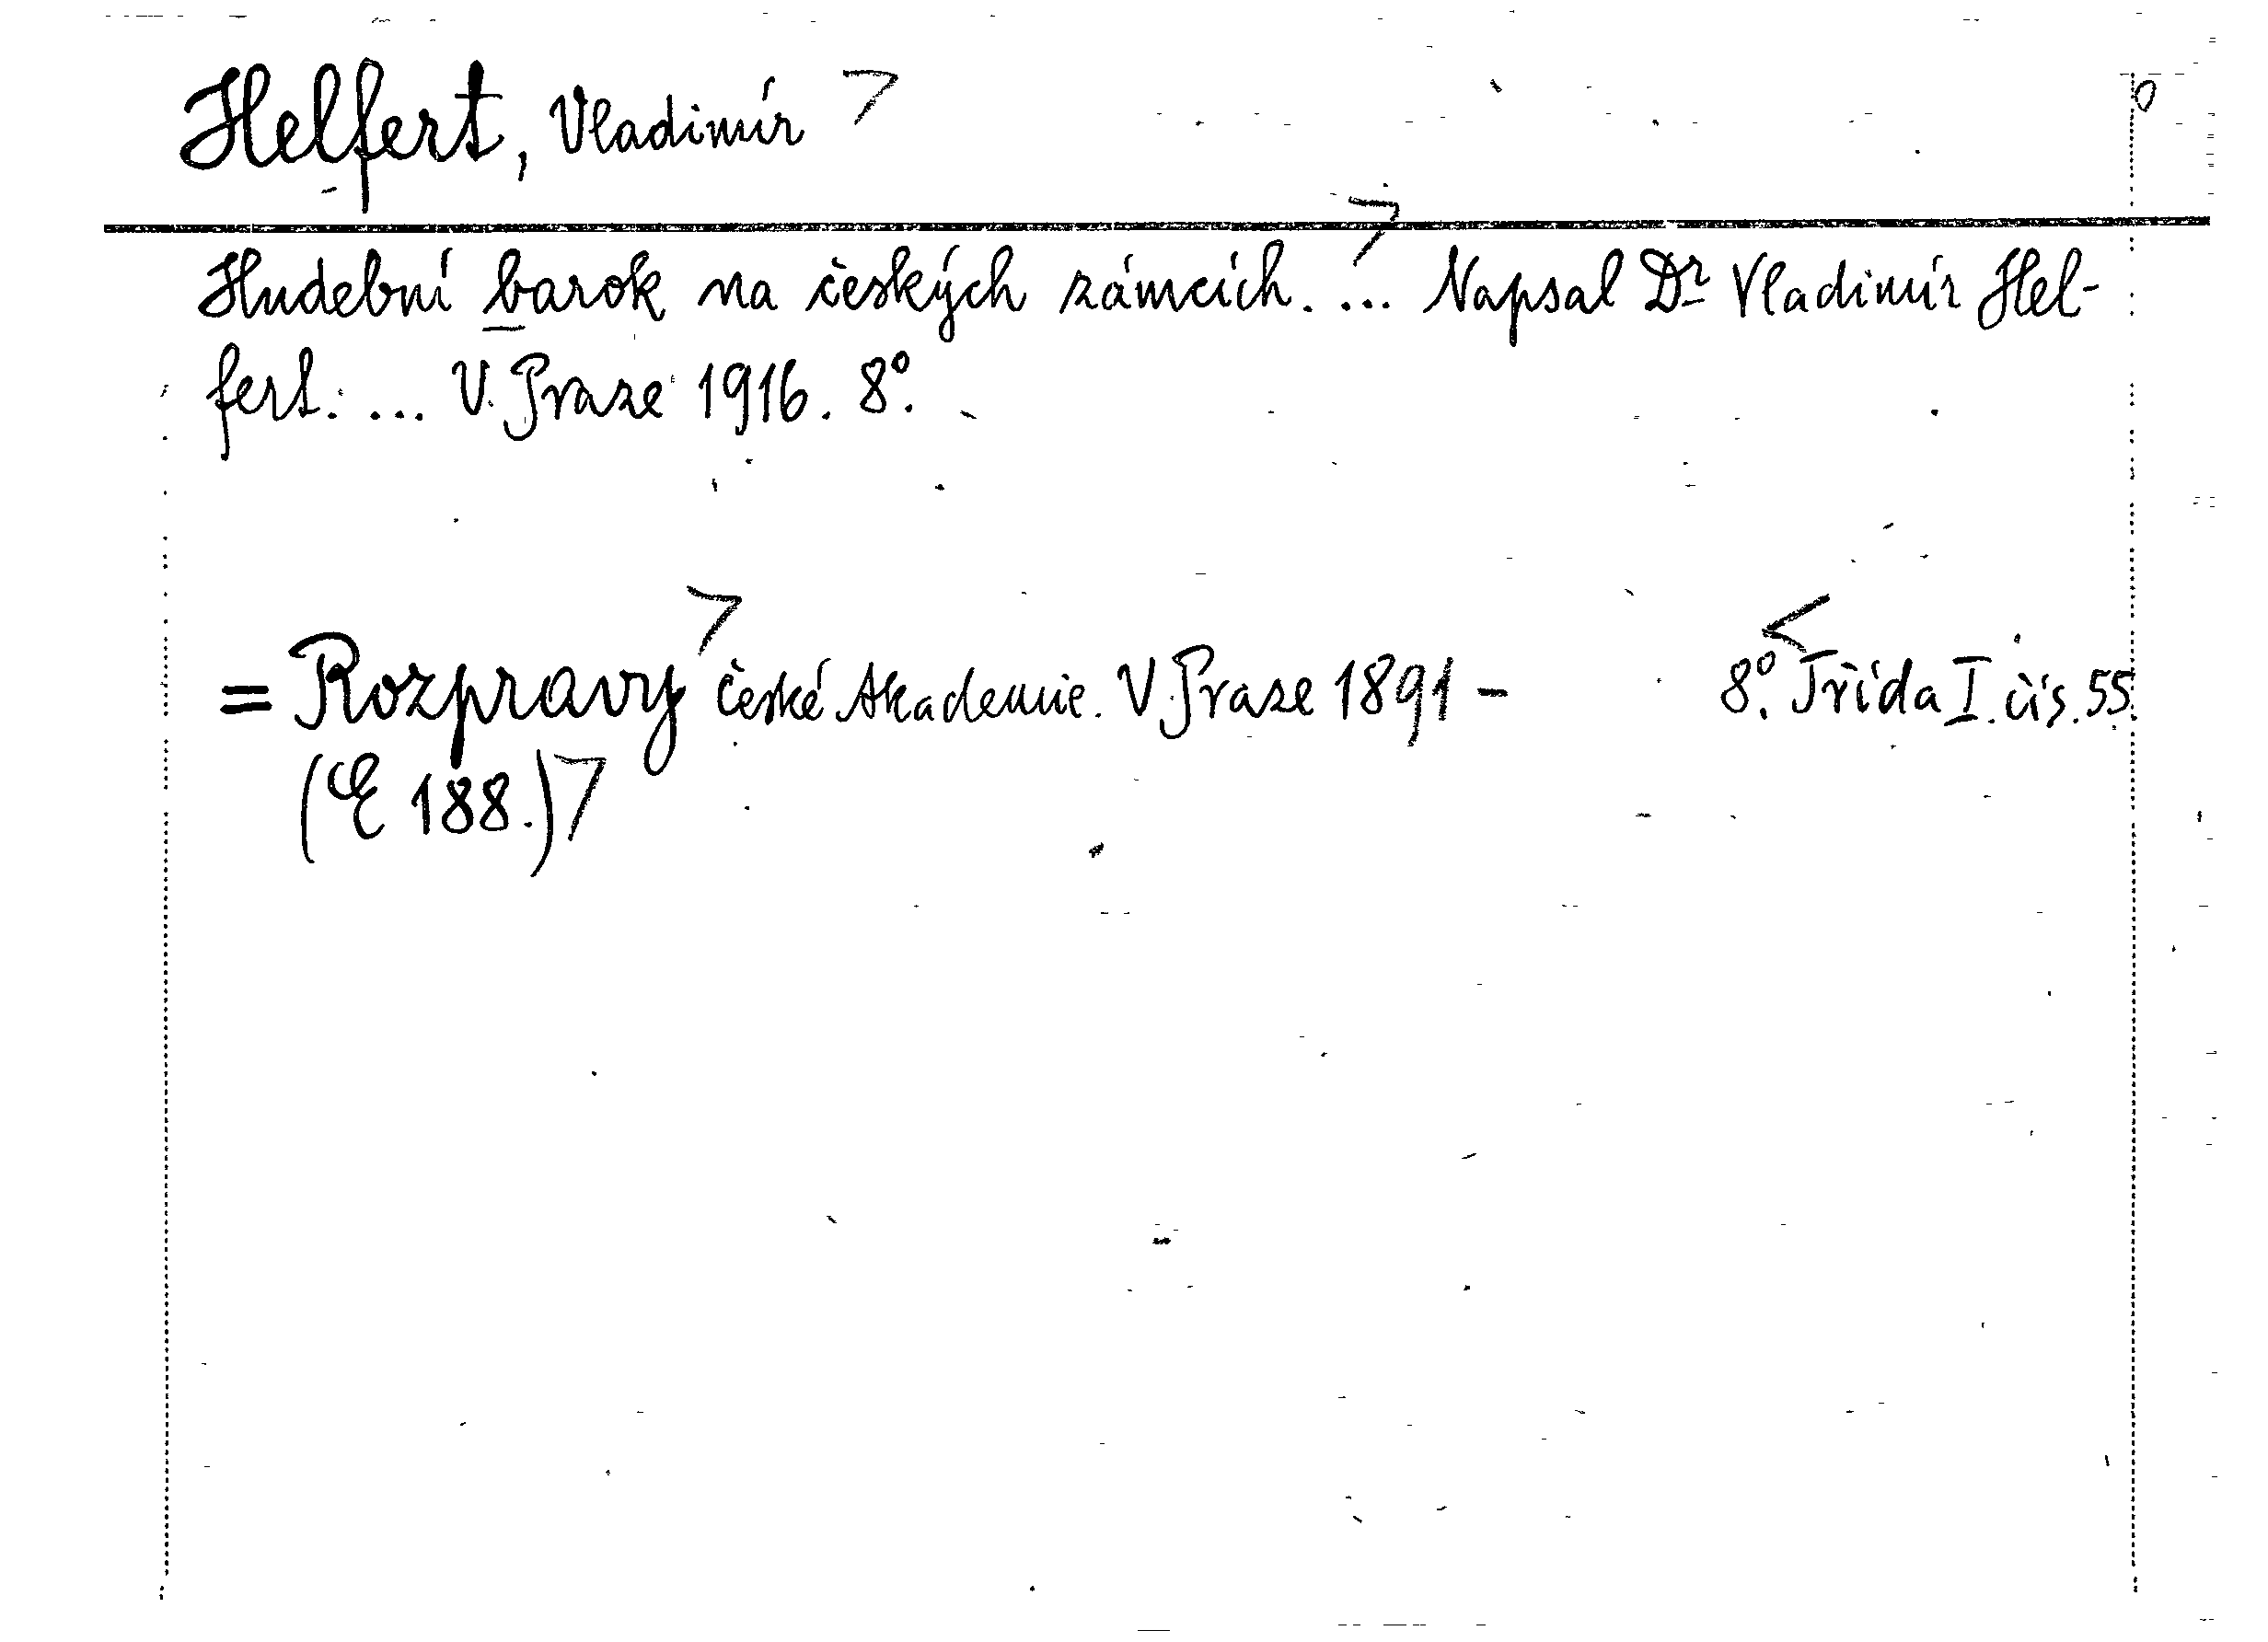 Helfert, Vladimír
Hudební barok na českých zámcích. ... Napsal Dr Vladimír Hel-
fert. ... V Praze 1916. 8°.
= Rozpravy České Akademie. V Praze 1891 - 8°. Třída I. čís. 55.
(E 188.)